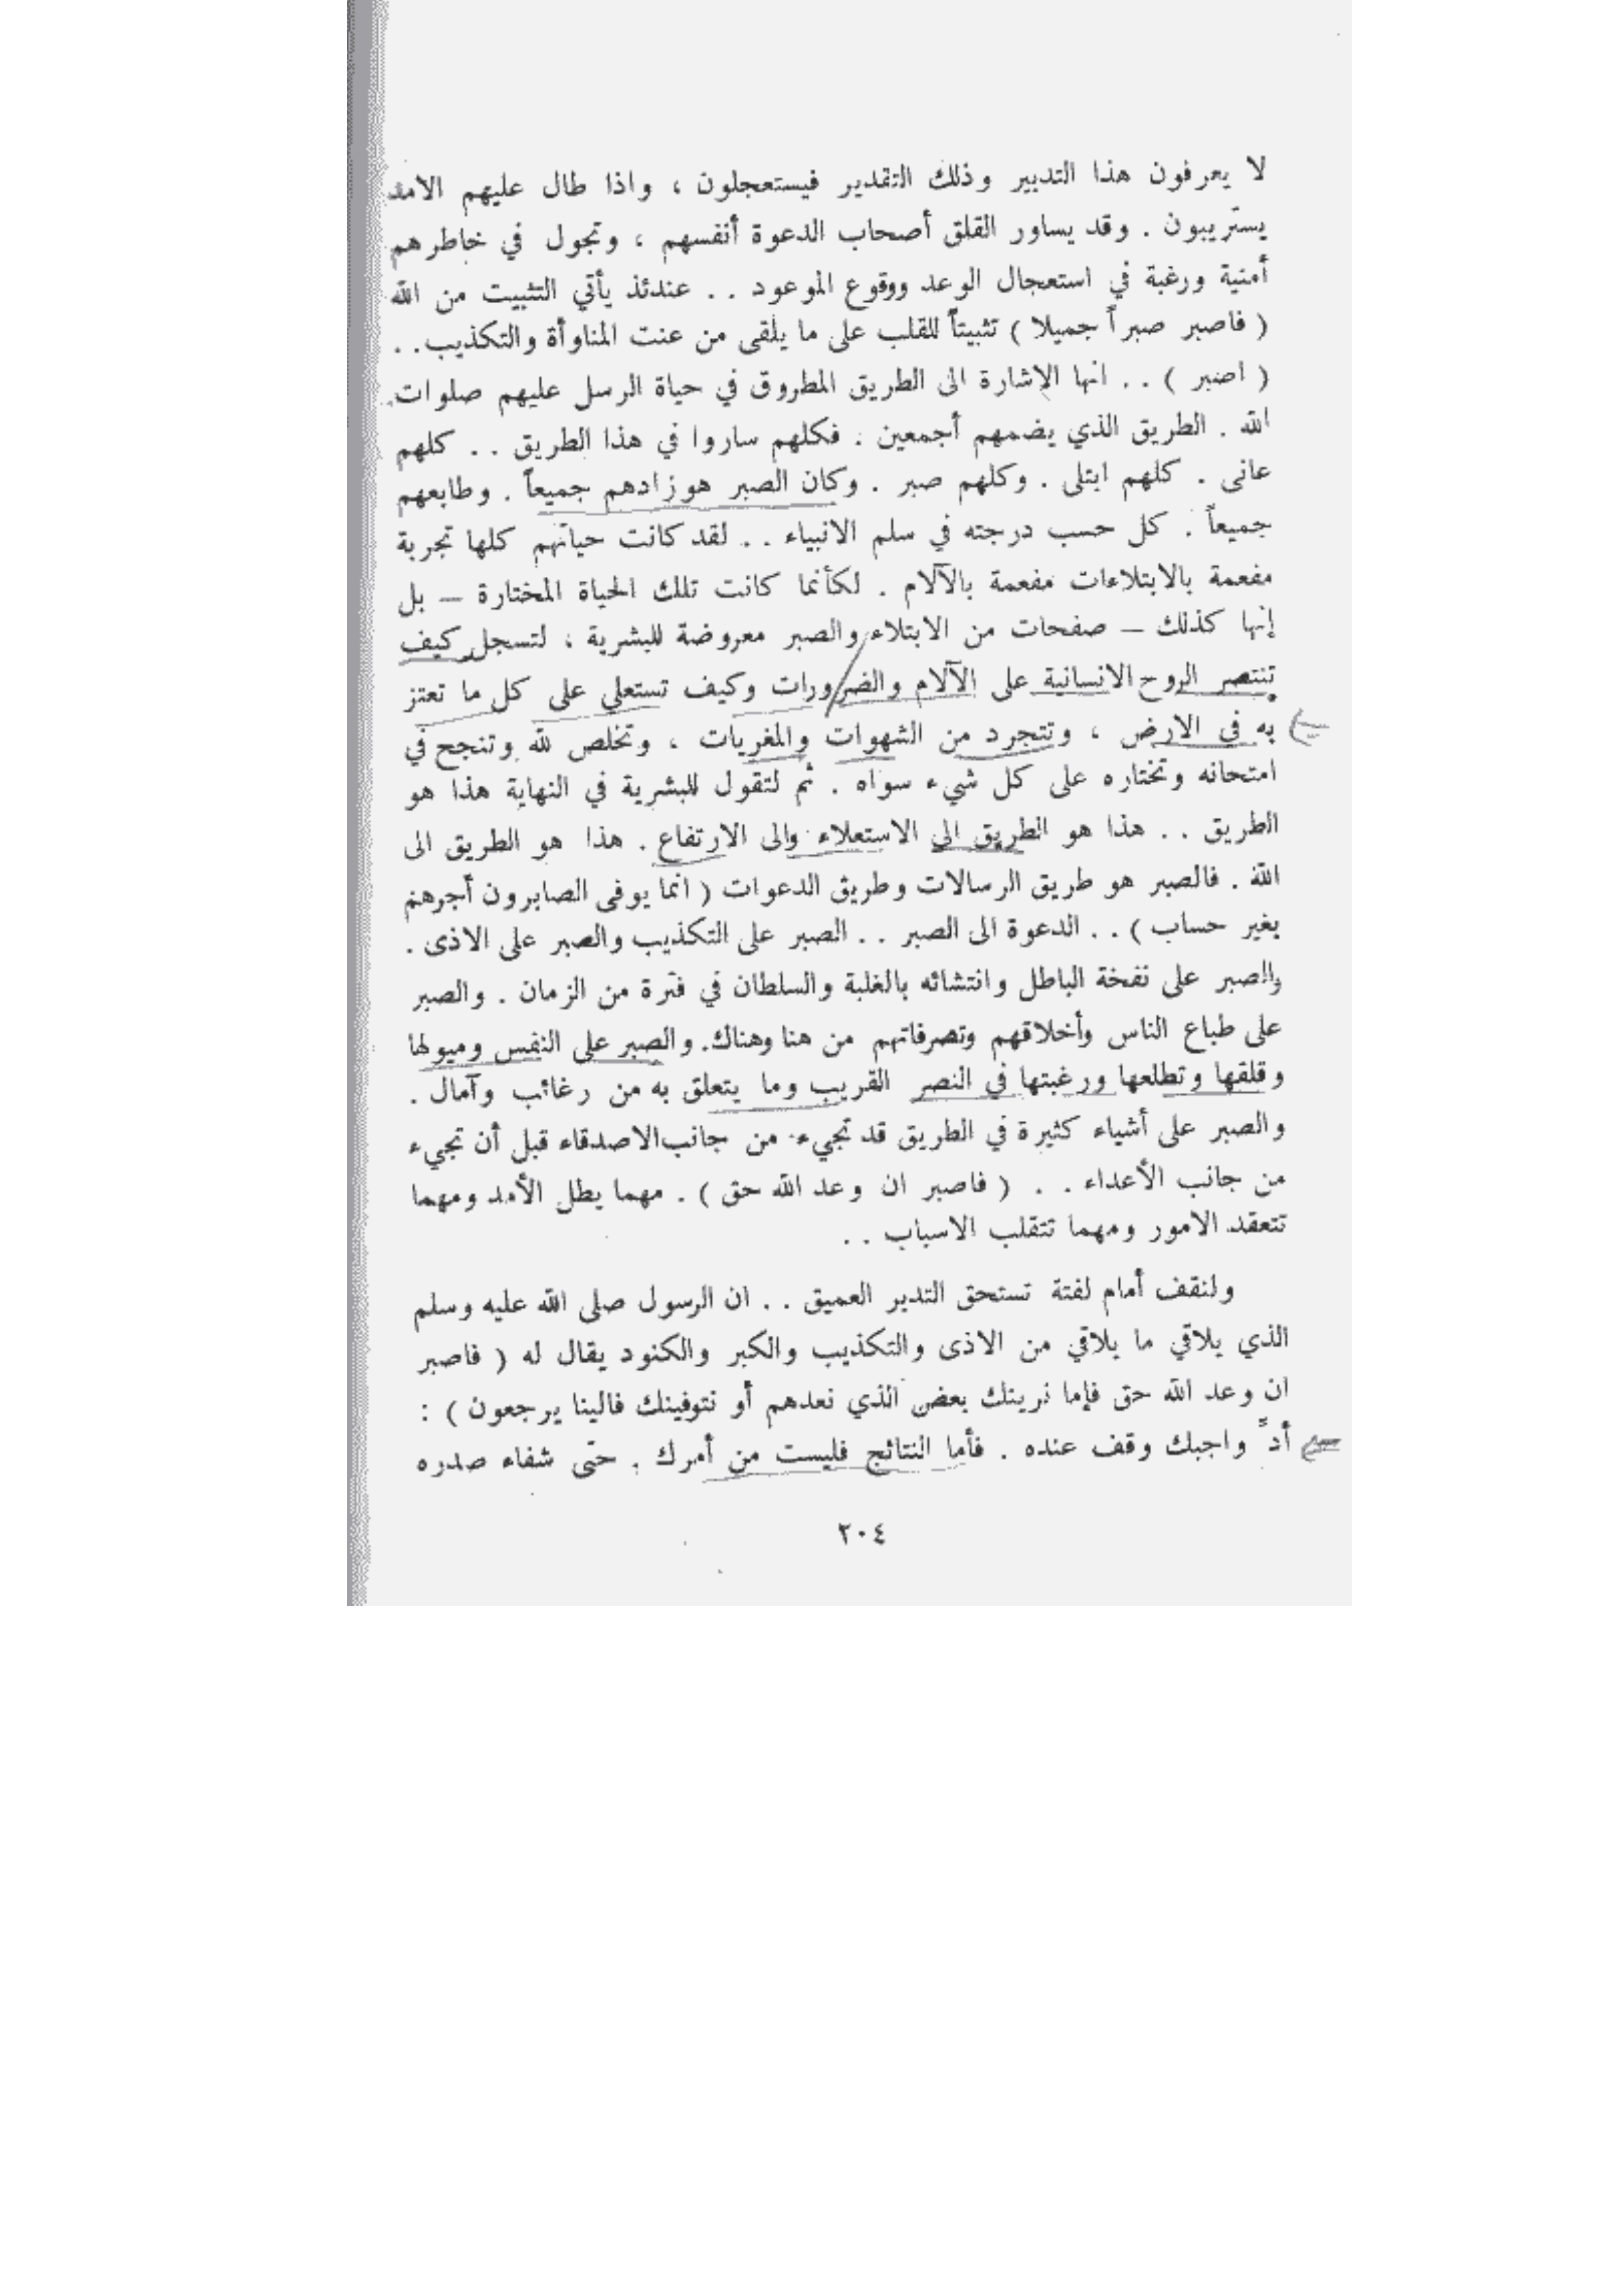 لا يعرفون هذا التدبير وذلك التقدير فيستعجلون ، واذا طال عليهم الامد
يستريبون . وقد يساور القلق أصحاب الدعوة أنفسهم ، وتجول في خاطرهم
أمنية ورغبة في استعجال الوعد ووقوع الموعود . . عندئذ يأتي التثبيت من الله
( فاصبر صبراً جميلا ) تثبيتاً للقلب على ما يلقى من عنت المناوأة والتكذيب . .
( اصبر ) . . انها الإشارة الى الطريق المطروق في حياة الرسل عليهم صلوات
الله . الطريق الذي يضمهم أجمعين . فكلهم ساروا في هذا الطريق . . كلهم
عانى . كلهم ابتلى . وكلهم صبر . وكان الصبر هو زادهم جميعاً . وطابعهم
جميعاً . كل حسب درجته في سلم الانبياء . . لقد كانت حياتهم كلها تجربة
مفعمة بالابتلاءات مفعمة بالآلام . لكأنما كانت تلك الحياة المختارة – بل
إنها كذلك – صفحات من الابتلاء والصبر معروضة للبشرية ، لتسجل كيف
تنتصر الروح الانسانية على الآلام والضرورات وكيف تستعلي على كل ما تعتز
به في الارض ، وتتجرد من الشهوات والمغريات ، وتخلص لله وتنجح في
امتحانه وتختاره على كل شيء سواه . ثم لتقول للبشرية في النهاية هذا هو
الطريق . . هذا هو الطريق الى الاستعلاء والى الارتفاع . هذا هو الطريق الى
الله . فالصبر هو طريق الرسالات وطريق الدعوات ( انما يوفى الصابرون أجرهم
بغير حساب ) . . الدعوة الى الصبر . . الصبر على التكذيب والصبر على الاذى .
والصبر على نفخة الباطل وانتشائه بالغلبة والسلطان في فترة من الزمان . والصبر
على طباع الناس وأخلاقهم وتصرفاتهم من هنا وهناك. والصبر على النفس وميولها
وقلقها وتطلعها ورغبتها في النصر القريب وما يتعلق به من رغائب وآمال .
والصبر على أشياء كثيرة في الطريق قد تجيء من جانب الاصدقاء قبل أن تجيء
من جانب الأعداء . . ( فاصبر ان وعد الله حق ) . مهما يطل الأمد ومهما
تتعقد الامور ومهما تتقلب الاسباب . .
ولنقف أمام لفتة تستحق التدبر العميق . . ان الرسول صلى الله عليه وسلم
الذي يلاقي ما يلاقي من الاذى والتكذيب والكبر والكنود يقال له ( فاصبر
ان وعد الله حق فإما نرينك بعض الذي نعدهم أو نتوفينك فالينا يرجعون ) :
أدّ واجبك وقف عنده . فأما النتائج فليست من أمرك . حتى شفاء صدره
٢٠٤